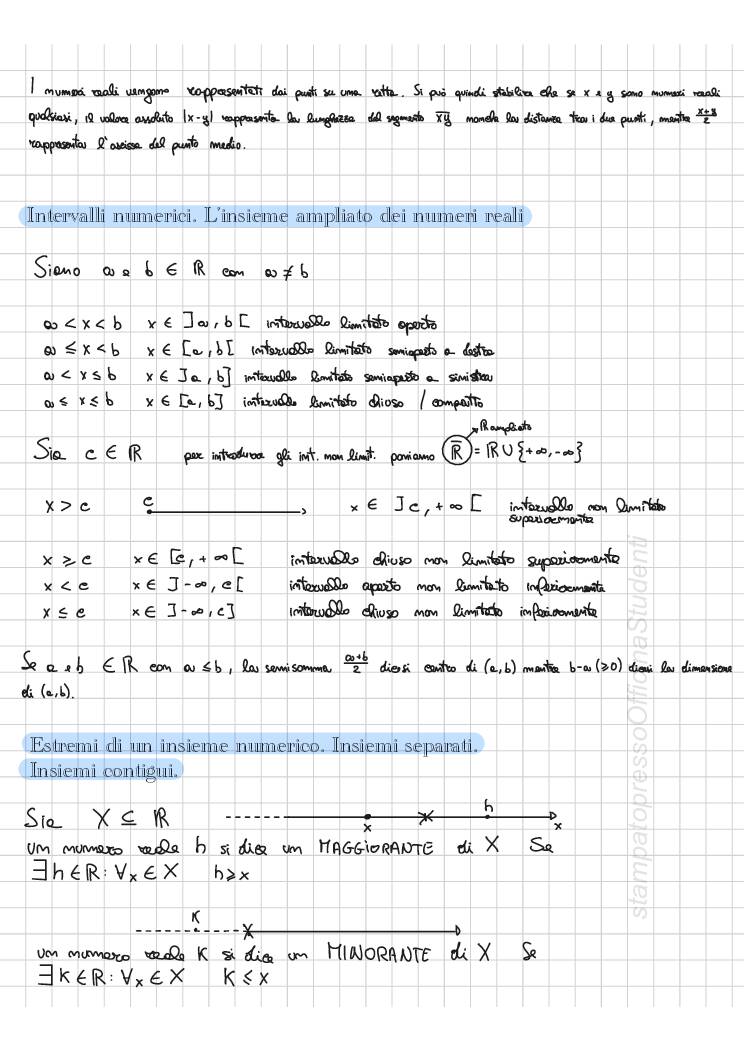 I numeri reali vengono rappresentati dai punti su una retta. Si può quindi stabilire che se x e y sono numeri reali
qualsiasi, il valore assoluto |x-y| rappresenta la lunghezza del segmento xy nonché la distanza tra i due punti, mentre x+y/2
rappresenta l'ascissa del punto medio.
Intervalli numerici. L'insieme ampliato dei numeri reali
Siano a e b ∈ ℝ con a ≠ b
a < x < b x ∈ ]a, b[ intervallo limitato aperto
a ≤ x < b x ∈ [a, b[ intervallo limitato semiaperto a destra
a < x ≤ b x ∈ ]a, b] intervallo limitato semiaperto a sinistra
a ≤ x ≤ b x ∈ [a, b] intervallo limitato chiuso / compatto
ℝ ampliato
Sia c ∈ ℝ per introdurre gli int. non limit. poniamo ℝ̅ = ℝ ∪ {+∞, -∞}
x > c c x ∈ ]c, +∞[ intervallo non limitato
superiormente
x ≥ c x ∈ [c, +∞[ intervallo chiuso non limitato superiormente
x < c x ∈ ]-∞, c[ intervallo aperto non limitato inferiormente
x ≤ c x ∈ ]-∞, c] intervallo chiuso non limitato inferiormente
Se a e b ∈ ℝ con a ≤ b, la semisomma a+b/2 dicesi centro di (a,b) mentre b-a (≥0) dicesi la dimensione
di (a,b).
Estremi di un insieme numerico. Insiemi separati.
Insiemi contigui.
Sia X ⊆ ℝ x h x
un numero reale h si dice un MAGGIORANTE di X Se
∃h∈ℝ: ∀x ∈ X h ≥ x
K
un numero reale K si dice un MINORANTE di X Se
∃K∈ℝ: ∀x ∈ X K ≤ x
stampatopressoOfficinaStudenti